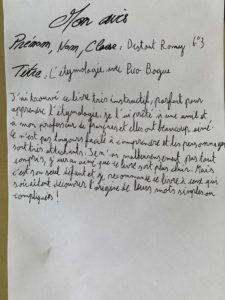 Mon avis
Prénom, Nom, Classe : Destant Romey 6°3
Titre : L'étymologie avec Pico Bogue
J'ai trouvé ce livre très instructif, parfait pour
apprendre l'étymologie, je l'ai prêté à une amie et
à mon professeur de français et elles ont beaucoup aimé.
Ce n'est pas toujours facile à comprendre et les personnages
sont très attachants. Je n'ai malheureusement pas tout
compris, j'aurai aimé que ce livre soit plus clair. Mais
c'est son seul défaut et je recommande ce livre à ceux qui
voudraient découvrir l'origine de leurs mots simples ou
compliqués !